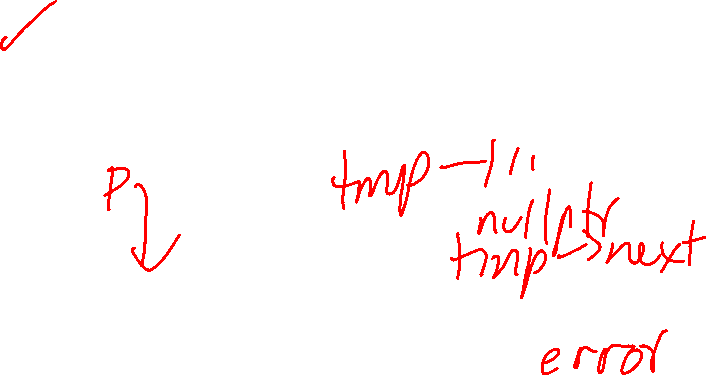 P
tmp
nullptr
tmp->next
error